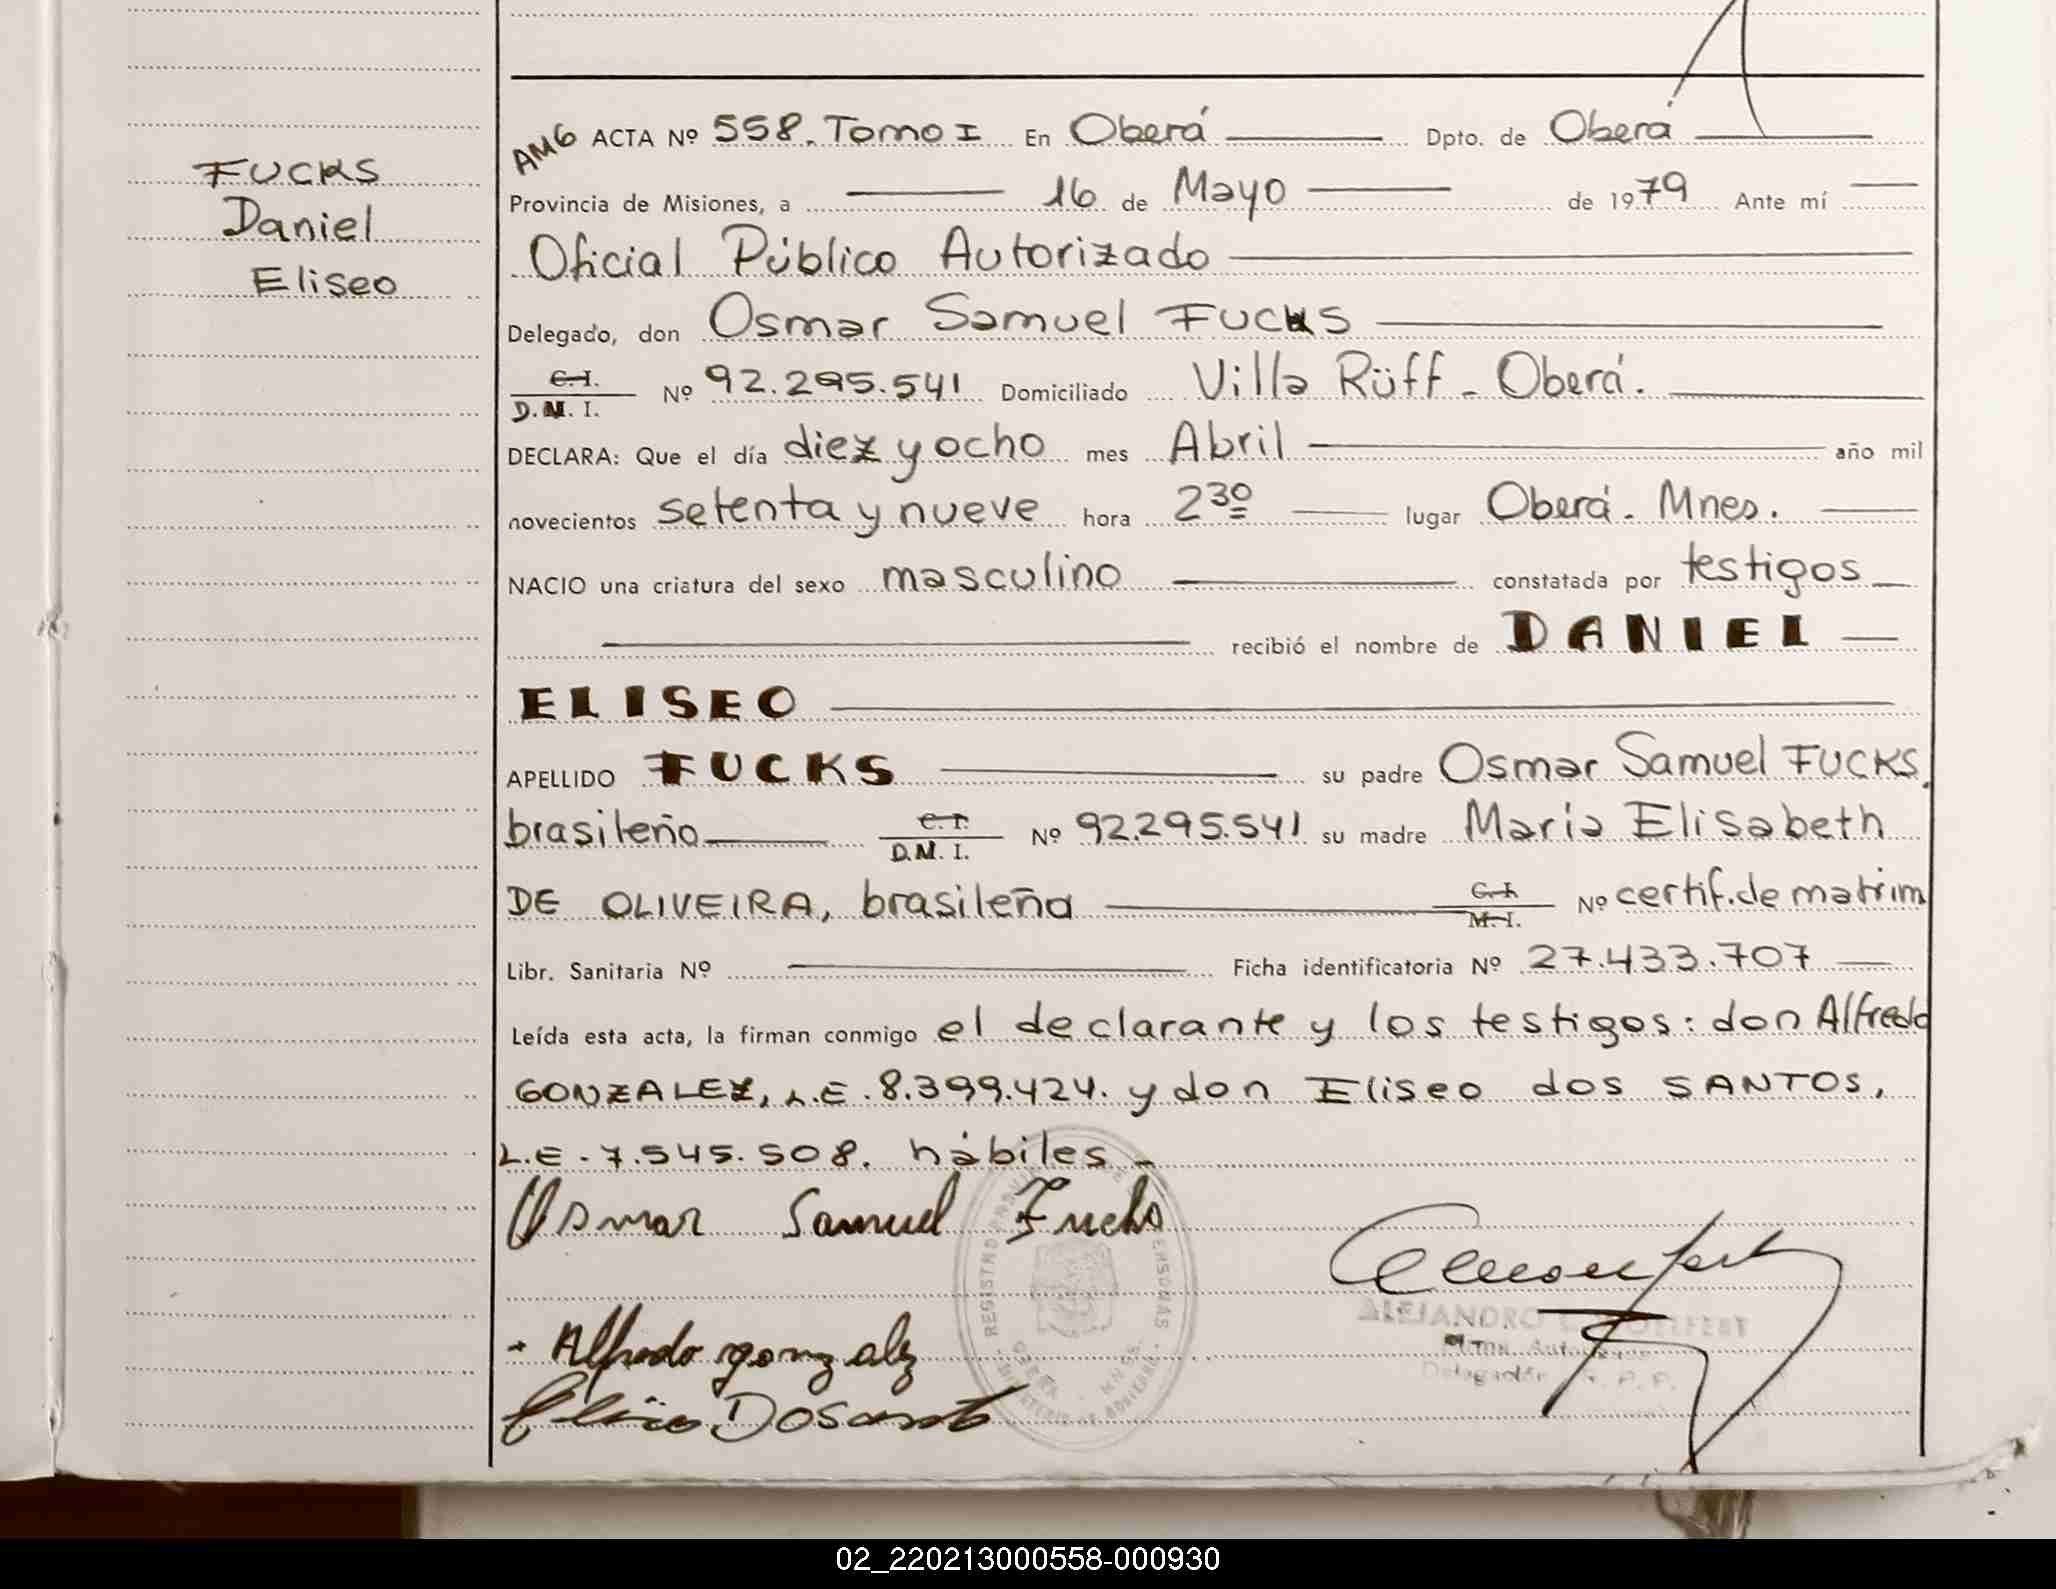 FUCKS
Daniel
Eliseo
AMG ACTA Nº 558. Tomo I En Oberá Dpto. de Oberá
Provincia de Misiones, a 16 de Mayo de 1979 Ante mí
Oficial Público Autorizado
Delegado, don Osmar Samuel FUCKS
C.I. D.M.I. Nº 92.295.541 Domiciliado Villa Rüff - Oberá.
DECLARA: Que el día diez y ocho mes Abril año mil
novecientos setenta y nueve hora 2³⁰ lugar Oberá. Mnes.
NACIO una criatura del sexo masculino constatada por testigos
recibió el nombre de DANIEL
ELISEO
APELLIDO FUCKS su padre Osmar Samuel FUCKS,
brasileño C.I. D.M.I. Nº 92.295.541 su madre María Elisabeth
DE OLIVEIRA, brasileña C.I. M.I. Nº certif. de matrim
Libr. Sanitaria Nº Ficha identificatoria Nº 27.433.707
Leída esta acta, la firman conmigo el declarante y los testigos: don Alfredo
GONZALEZ, L.E. 8.399.424. y don Eliseo dos SANTOS,
L.E. 7.545.508. hábiles -
Osmar Samuel Fucks
Alfredo gonzalz
ALEJANDRO
Delegación
REGISTRO
02_220213000558-000930